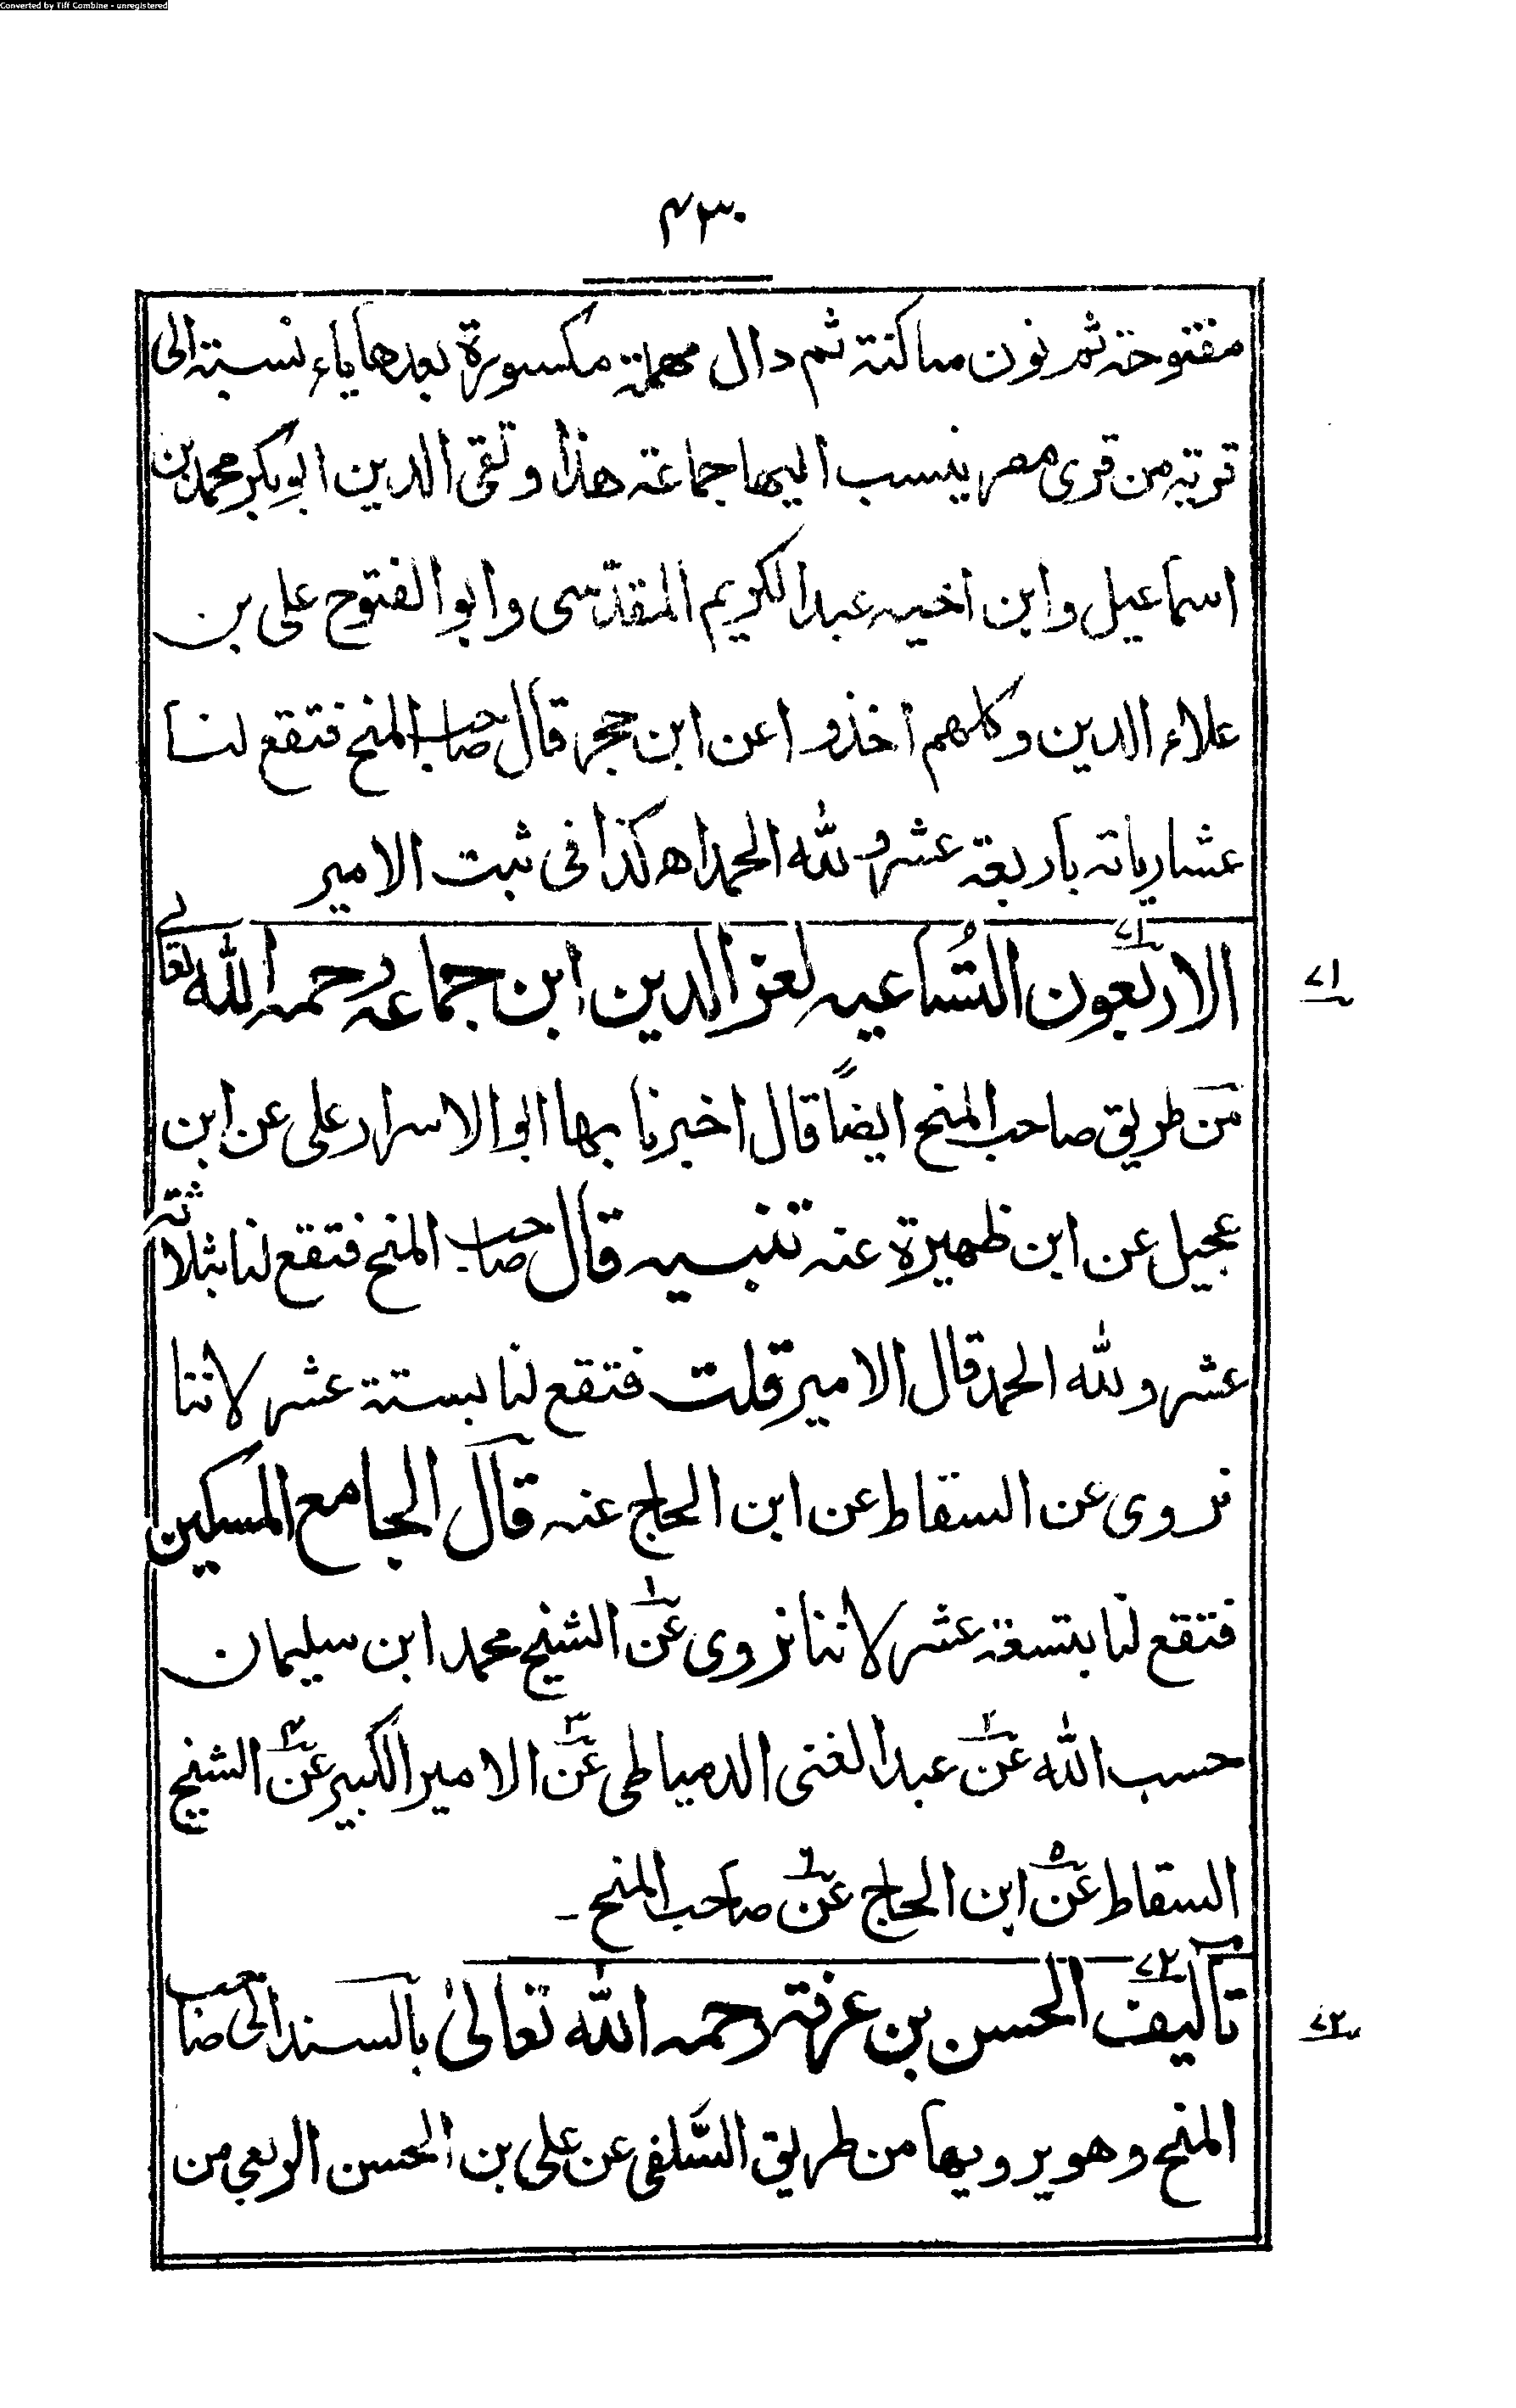 Converted by Tiff Combine - unregistered
۴۳۰
مفتوحة ثم نون ساكنة ثم دال مهملة مكسورة بعدها ياء نسبة الى
قرية من قرى مصر ينسب اليها جماعة هذا وتقى الدين ابو بكر محمد بن
اسماعيل وابن اخيه عبد الكريم المقدّسى وابو الفتوح على بن
علاء الدين وكلهم اخذوا عن ابن حجر قال صاحب المنح فتقع لنا
عشارياته باربعة عشر ولله الحمد اه كذا فى ثبت الامير
۷۱
الاربعون التُساعيه لعز الدين ابن جماعه رحمه الله تعالے
۷۱
من طريق صاحب المنح ايضًا قال اخبرنا بها ابو الاسرار على عن ابن
عجيل عن ابن ظهيرة عنه تنبيه قال صاحب المنح فتقع لنا بثلاثة
عشر ولله الحمد قال الامير قلت فتقع لنا بستة عشر لاننا
نروى عن السقاط عن ابن الحاج عنه قال الجامع المسكين
فتقع لنا بتسعة عشر لاننا نروى عن۱ الشيخ محمد ابن سليمان
حسب الله عن۲ عبد الغنى الدمياطى عن۳ الامير الكبير عن۴ الشيخ
السقاط عن۵ ابن الحاج عن۶ صاحب المنح ـ
۷۲
تآليف الحسن بن عرفة رحمه الله تعالىٰ بالسند الى صاحب
۷۲
المنح وهو يرويها من طريق السَّلفى عن على بن الحسن الربعى من